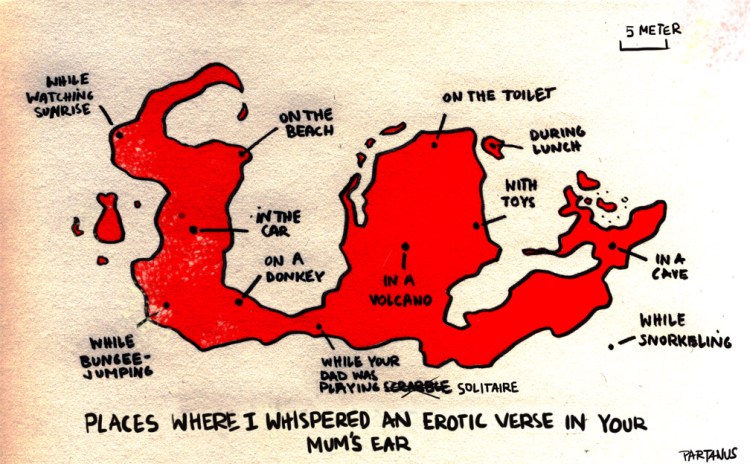 5 METER
WHILE
WATCHING
SUNRISE
ON THE
BEACH
ON THE TOILET
DURING
LUNCH
WITH
TOYS
IN THE
CAR
ON A
DONKEY
IN A
VOLCANO
IN A
CAVE
WHILE
SNORKELING
WHILE
BUNGEE-
JUMPING
WHILE YOUR
DAD WAS
PLAYING SCRABBLE SOLITAIRE
PLACES WHERE I WHISPERED AN EROTIC VERSE IN YOUR
MUM'S EAR
PARTANUS